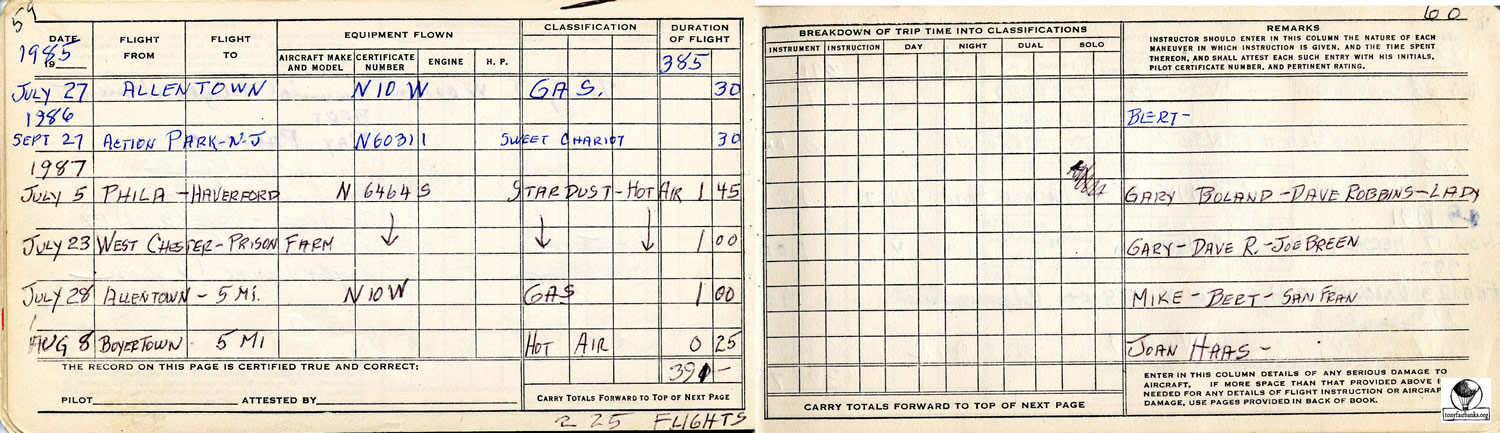 59
DATE FLIGHT FROM FLIGHT TO EQUIPMENT FLOWN AIRCRAFT MAKE AND MODEL CERTIFICATE NUMBER ENGINE H. P. CLASSIFICATION DURATION OF FLIGHT
1985 385
19
JULY 27 ALLENTOWN N10W GAS. 30
1986
SEPT 27 ACTION PARK-N-J N60311 SWEET CHARIOT 30
1987
JULY 5 PHILA - HAVERFORD N 6464 S STARDUST-HOT AIR 1 45
JULY 23 WEST CHESTER-PRISON FARM ↓ ↓ ↓ 1 00
JULY 28 ALLENTOWN - 5 MI. N10W GAS 1 00
AUG 8 BOYERTOWN 5 MI HOT AIR 0 25
THE RECORD ON THIS PAGE IS CERTIFIED TRUE AND CORRECT:
PILOT ATTESTED BY
CARRY TOTALS FORWARD TO TOP OF NEXT PAGE
225 FLIGHTS
60
BREAKDOWN OF TRIP TIME INTO CLASSIFICATIONS
INSTRUMENT INSTRUCTION DAY NIGHT DUAL SOLO
REMARKS
INSTRUCTOR SHOULD ENTER IN THIS COLUMN THE NATURE OF EACH
MANEUVER IN WHICH INSTRUCTION IS GIVEN, AND THE TIME SPENT
THEREON, AND SHALL ATTEST EACH SUCH ENTRY WITH HIS INITIALS,
PILOT CERTIFICATE NUMBER, AND PERTINENT RATING.
BERT-
GARY BOLAND -DAVE ROBBINS-LADY
GARY-DAVE R.-JOE BREEN
MIKE - BERT - SAN FRAN
JOAN HAAS -
CARRY TOTALS FORWARD TO TOP OF NEXT PAGE
ENTER IN THIS COLUMN DETAILS OF ANY SERIOUS DAMAGE TO
AIRCRAFT. IF MORE SPACE THAN THAT PROVIDED ABOVE
NEEDED FOR ANY DETAILS OF FLIGHT INSTRUCTION OR AIRCRAF
DAMAGE, USE PAGES PROVIDED IN BACK OF BOOK.
tonyfairbanks.org